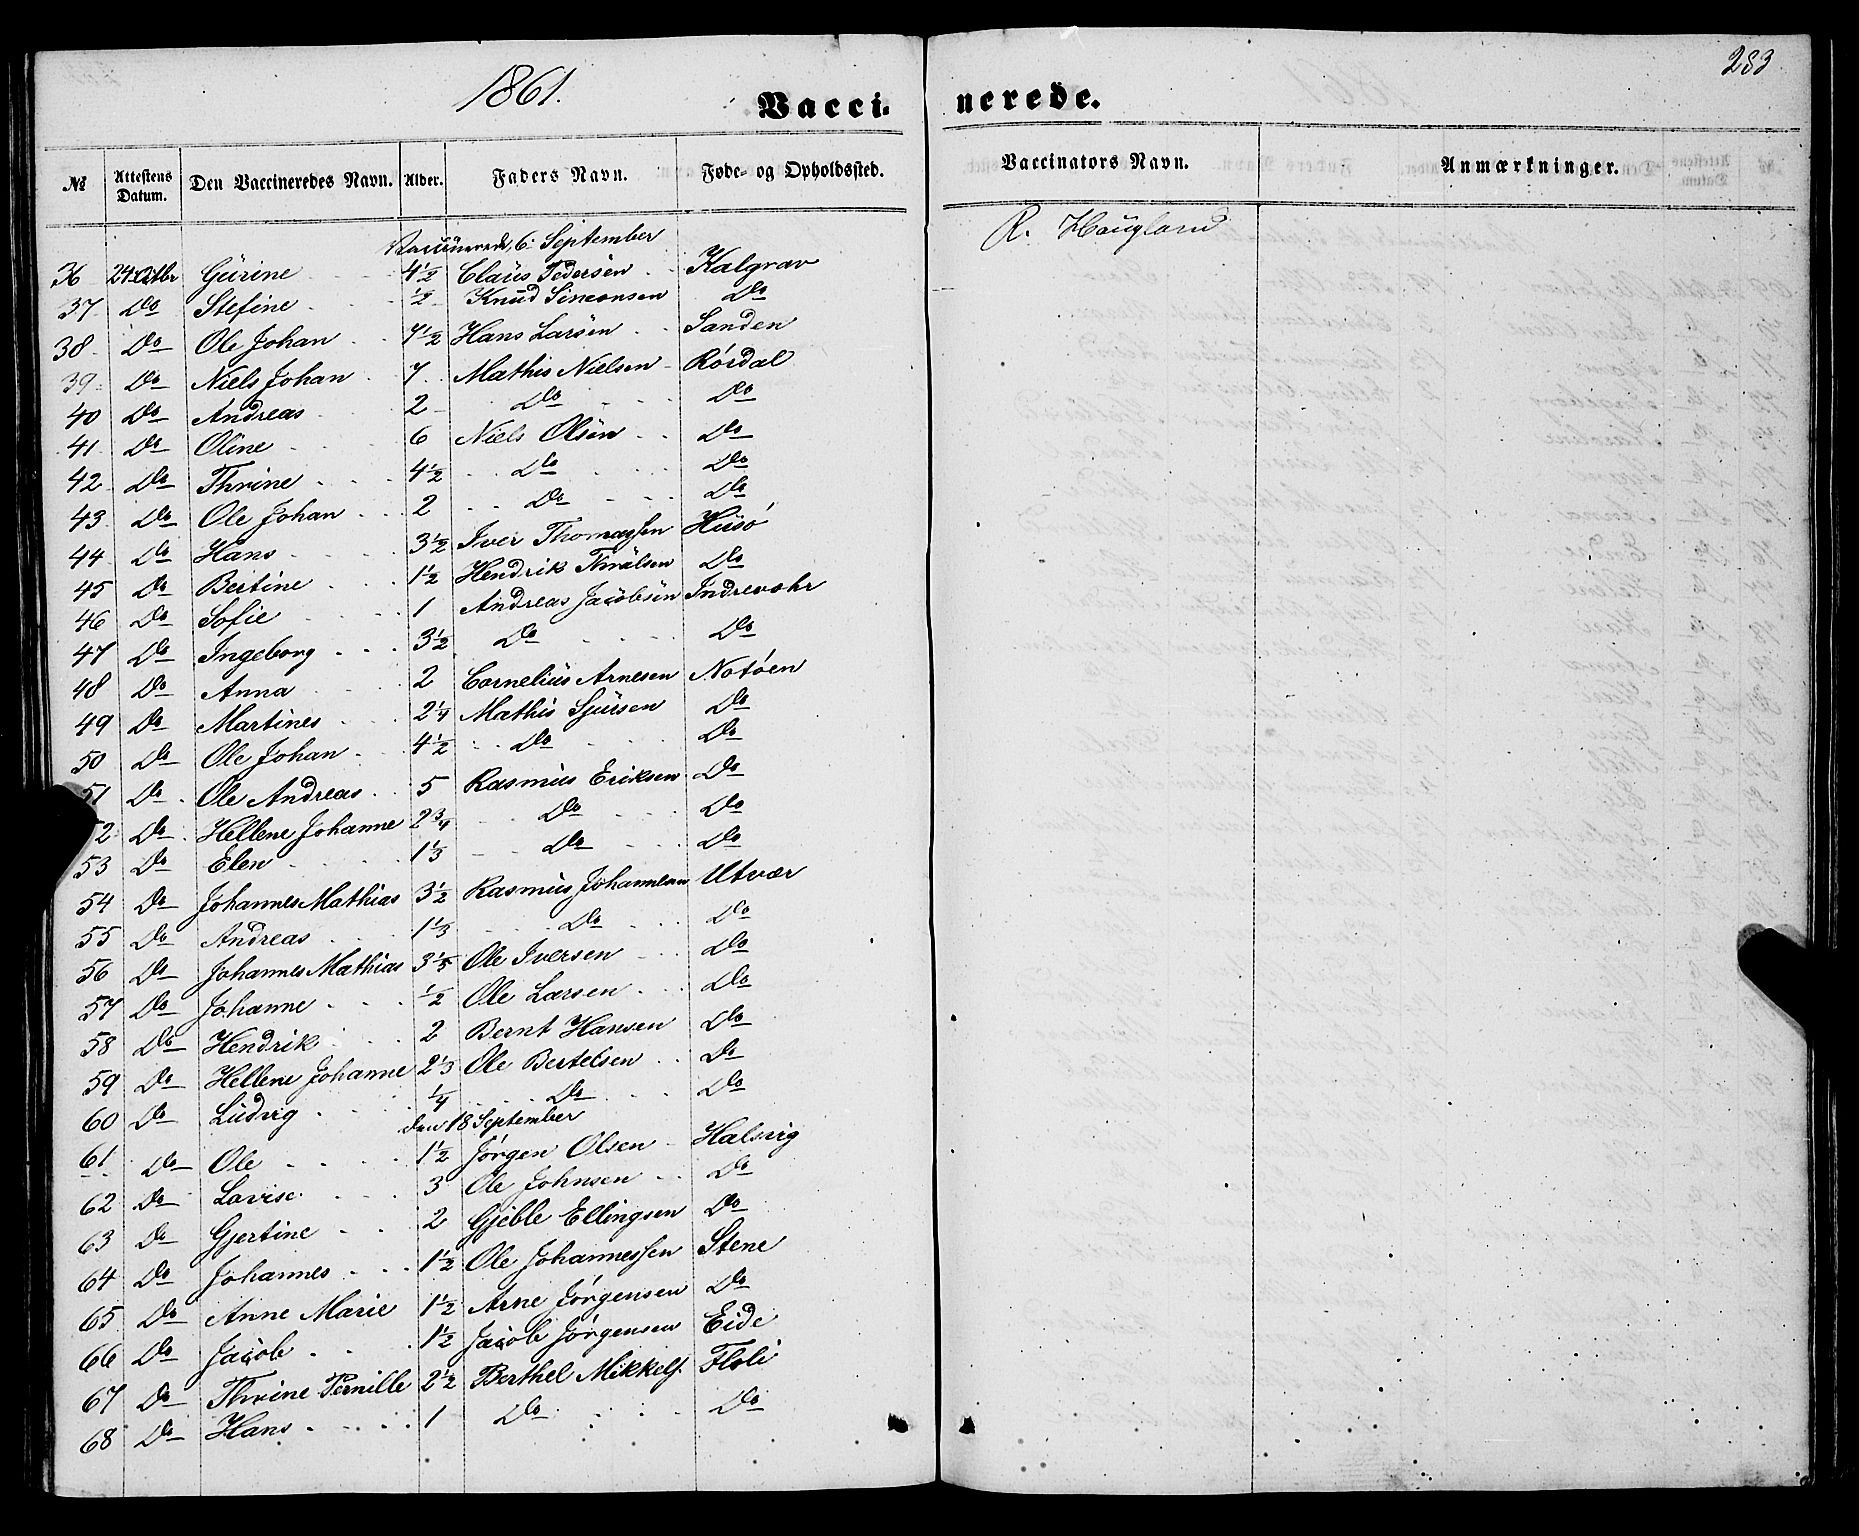 283
1861. Vacci- nerede.
№ Attestens Datum. Den Vaccineredes Navn. Alder. Faders Navn. Føde- og Opholdssted. Vaccinators Navn. Anmærkninger.
Vaccinerede, 6. September R. Haugland
36 24 Octbr Gurine 4 1/2 Claus Pedersen Kalgrav
37 Do Stefine 1/2 Knud Simonsen Do
38 Do Ole Johan 7 1/2 Hans Larsen Sanden
39 Do Niels Johan 7 Mathis Nielsen Rördal
40 Do Andreas 2 Do Do
41 Do Oline 6 Niels Olsen Do
42 Do Thrine 4 1/2 Do Do
43 Do Ole Johan 2 Do Do
44 Do Hans 3 1/2 Iver Thomassen Husö
45 Do Bertine 1 1/2 Hendrik Do
46 Do Sofie 1 Andreas Jacobsen Indrevohr
47 Do Ingeborg 3 1/2 Do Do
48 Do Anna 2 Cornelius Arnesen Notöen
49 Do Martines 2 1/4 Mathis Sjursen Do
50 Do Ole Johan 4 1/2 Do Do
51 Do Ole Andreas 5 Rasmus Eriksen Do
52 Do Hellene Johanne 2 3/4 Do Do
53 Do Elen 1 1/3 Do Do
54 Do Johannes Mathias 3 1/2 Rasmus Johannesen Utvær
55 Do Andreas 1 1/3 Do Do
56 Do Johannes Mathias 3 1/3 Ole Iversen Do
57 Do Johanne 1/2 Ole Larsen Do
58 Do Hendrik 2 Bernt Hansen Do
59 Do Hellene Johanne 2 1/3 Ole Bertelsen Do
60 Do Ludvig 1/4 Do Do
den 18 September
61 Do Ole 1 1/2 Jörgen Olsen Halsvig
62 Do Lovise 3 Ole Johnsen Do
63 Do Gjertine 2 Gjeble Ellingsen Do
64 Do Johannes 1 1/2 Ole Johannessen Stene
65 Do Anne Marie 1 1/2 Arne Jörgensen Do
66 Do Jacob 1 1/2 Jacob Jörgensen Eide
67 Do Thrine Pernille 2 1/2 Berthel Mikkels. Floli
68 Do Hans 1 Do Do